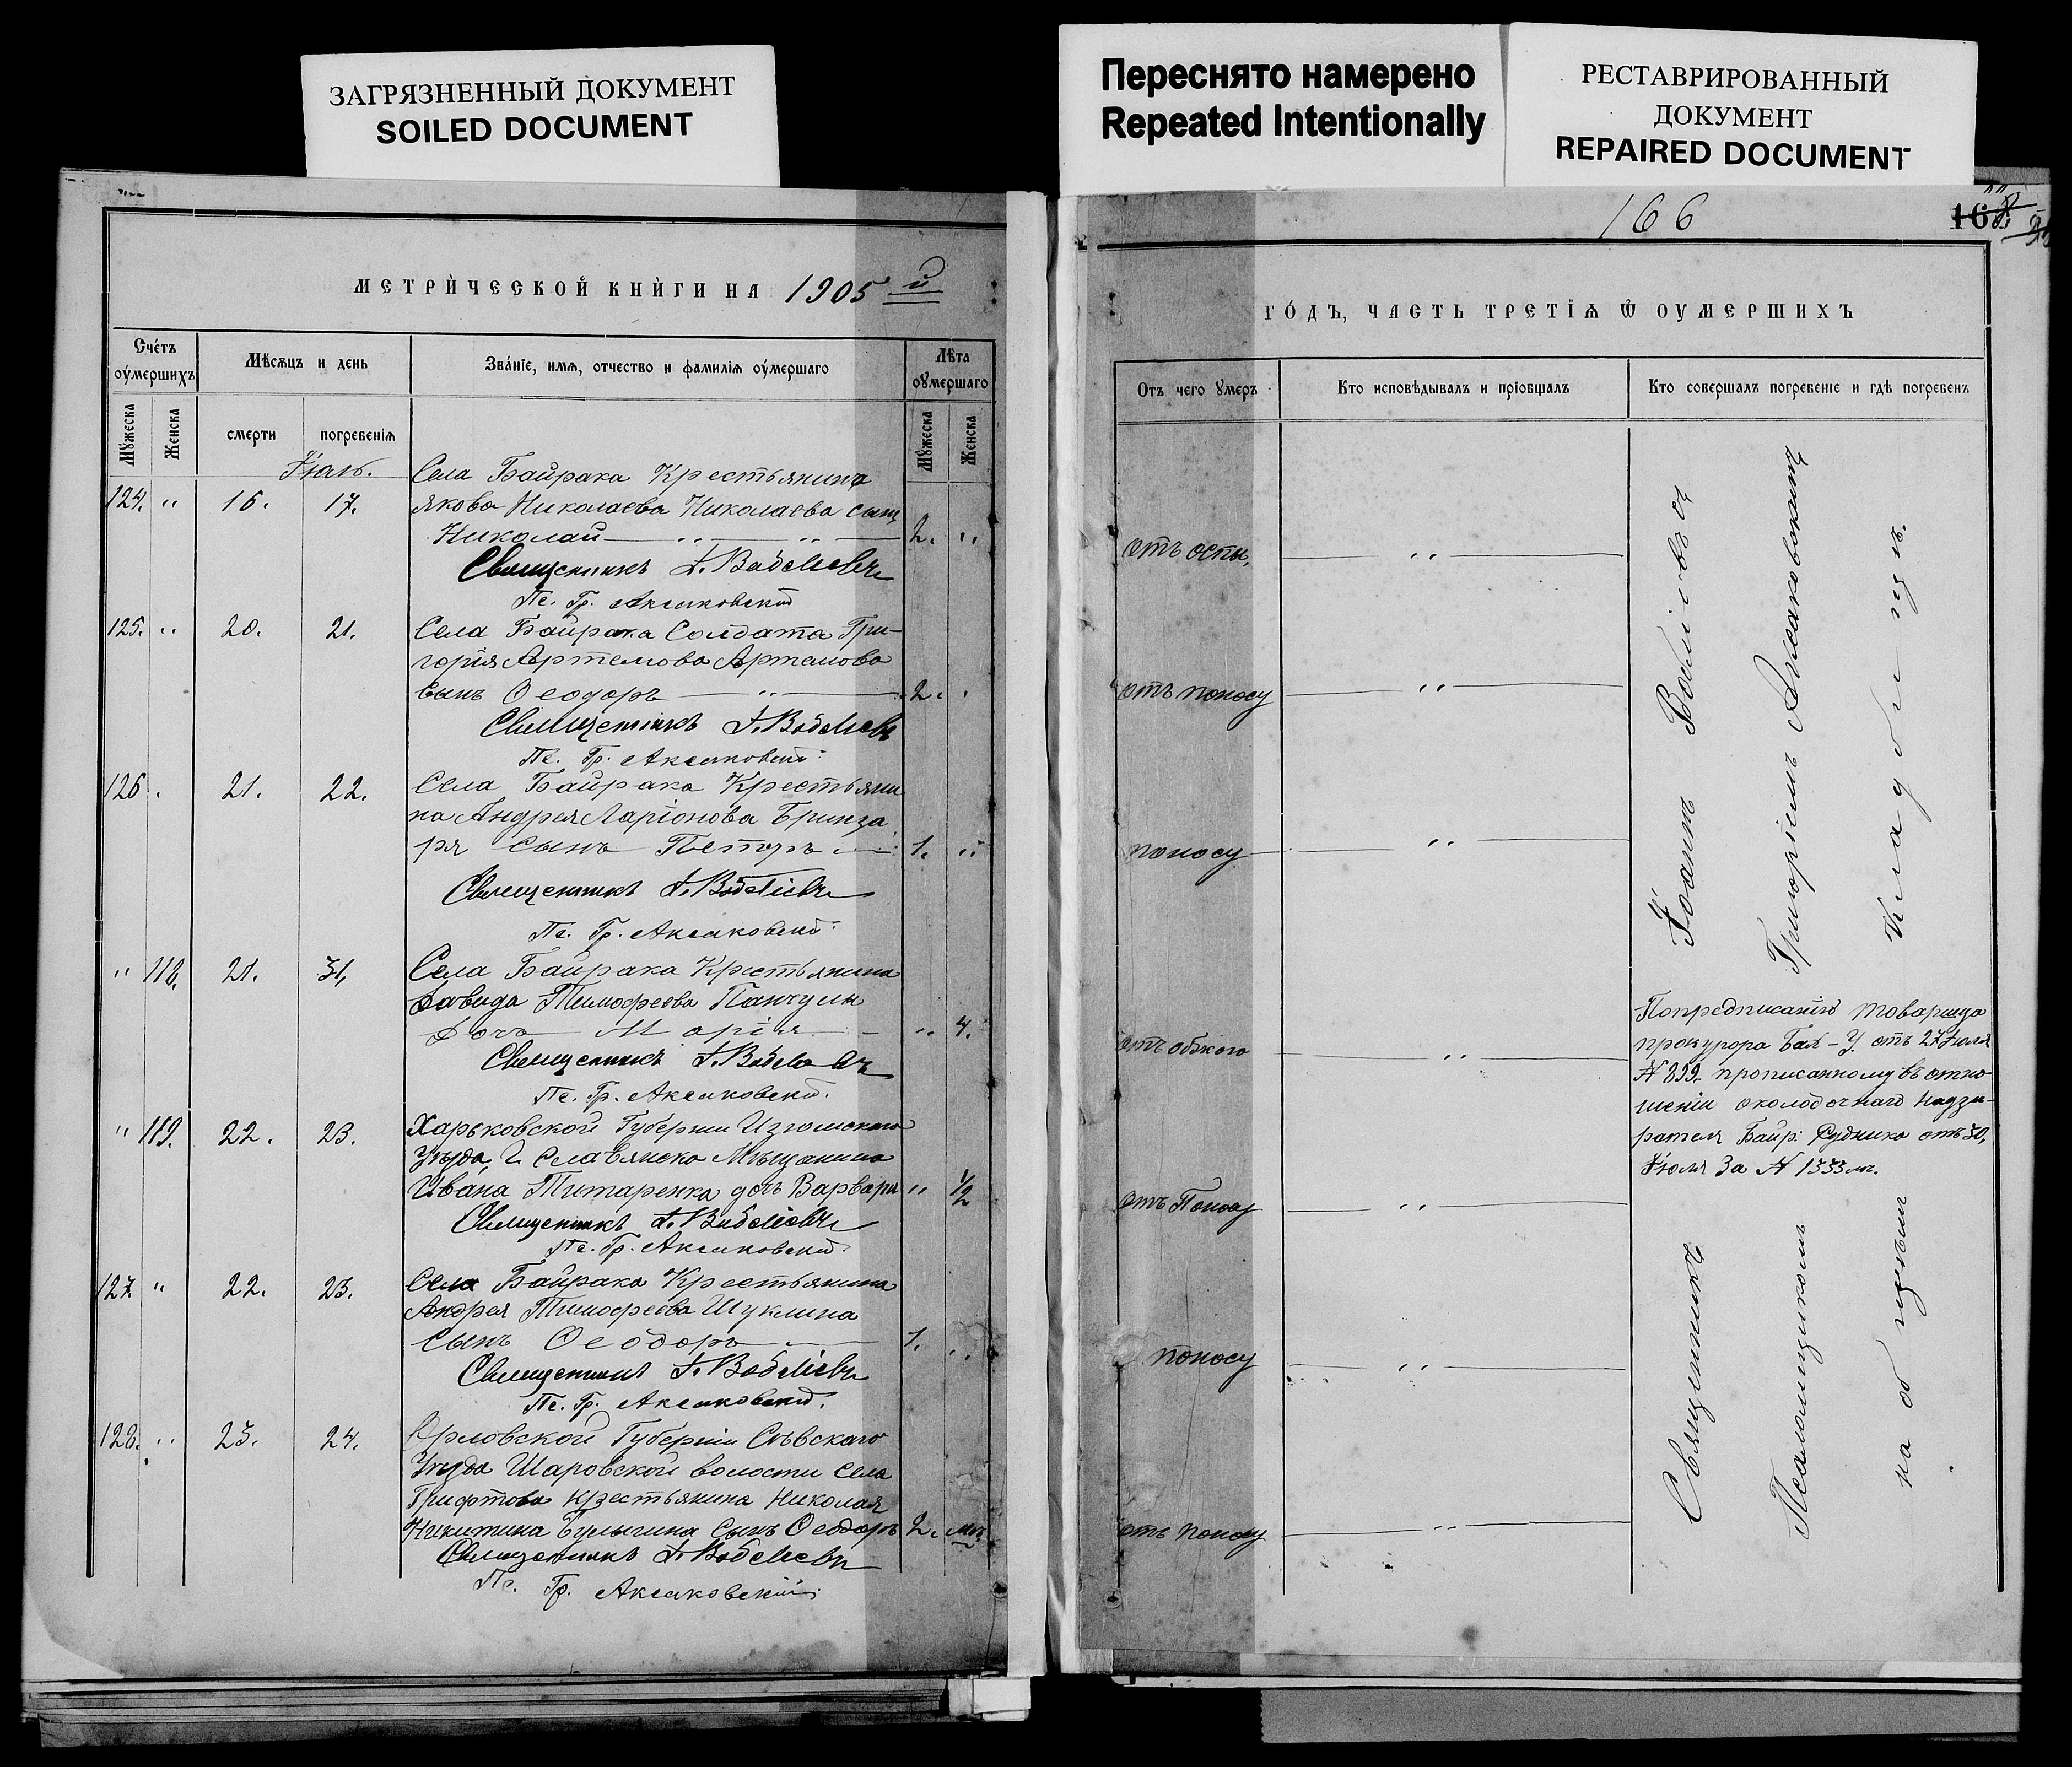 ЗАГРЯЗНЕННЫЙ ДОКУМЕНТ
SOILED DOCUMENT
Переснято намерено
Repeated Intentionally
РЕСТАВРИРОВАННЫЙ
ДОКУМЕНТ
REPAIRED DOCUMENT
МЕТРИЧЕСКОЙ КНИГИ НА 1905 й
Счетъ оумершихъ
Мѣсяцъ и день
Званіе, имя, отчество и фамилія оумершаго
Лѣта оумершаго
Мужеска
Женска
смерти
погребенія
Мужеска
Женска
Іюль.
Села Байрака Крестьянина
124. " 16. 17. Якова Николаева Николаева сынъ
Николай — " — " — 2. "
Священникъ І.
Пс. Гр. Аксаковскій
125. " 20. 21. Села Байрака Солдата Гри-
горія Артемова Артемова
сынъ Ѳеодоръ — " — 2. "
Священникъ І.
Пс. Гр. Аксаковскій.
126 . 21. 22. Села Байрака Крестьяни
на Андрея Ларіонова Бринза
ря сынъ Петръ — 1. "
Священникъ І.
Пс. Гр. Аксаковскій.
" 118. 21. 31, Села Байрака Крестьянина
Давида Тимофеева
дочь Марія — " 4.
Священникъ І.
Пс. Гр. Аксаковскій.
" 119. 22. 23. Харьковской Губерніи Изюмскаго
Уѣзда г. Славянска Мѣщанина
Ивана Титаренка дочь Варвара " 1/2
Священникъ І.
Пс. Гр. Аксаковскій.
127. " 22. 23. Села Байрака Крестьянина
Андрея Тимофеева Шуклина
сынъ Ѳеодоръ — 1. "
Священникъ І.
Пс. Гр. Аксаковскій.
128. " 23. 24. Орловской Губерніи Сѣвскаго
Уѣзда Шаровской волости села
крестьянина Николая
Никитина Булыгина сынъ Ѳеодоръ 2.
Священникъ І.
Пс. Гр. Аксаковскій.
166
ГОДЪ, ЧАСТЬ ТРЕТІЯ Ѿ ОУМЕРШИХЪ
Отъ чего умеръ
Кто исповѣдывалъ и пріобщалъ
Кто совершалъ погребеніе и гдѣ погребенъ
отъ оспы, — " —
отъ поносу — " —
поносу — " —
отъ — " —
отъ Поносу — " —
поносу — " —
отъ поносу — " —
По предписанію товарища
прокурора Бах-У. отъ 27 Іюля
№ 899. прописанному въ отно-
шеніи околодочнаго надзи-
рателя Байр. Рудника отъ 30,
Іюля за № 1333мъ.
Священникъ Іоаннъ
Псаломщикомъ Григоріемъ Аксаковскимъ
на общемъ кладбищѣ.